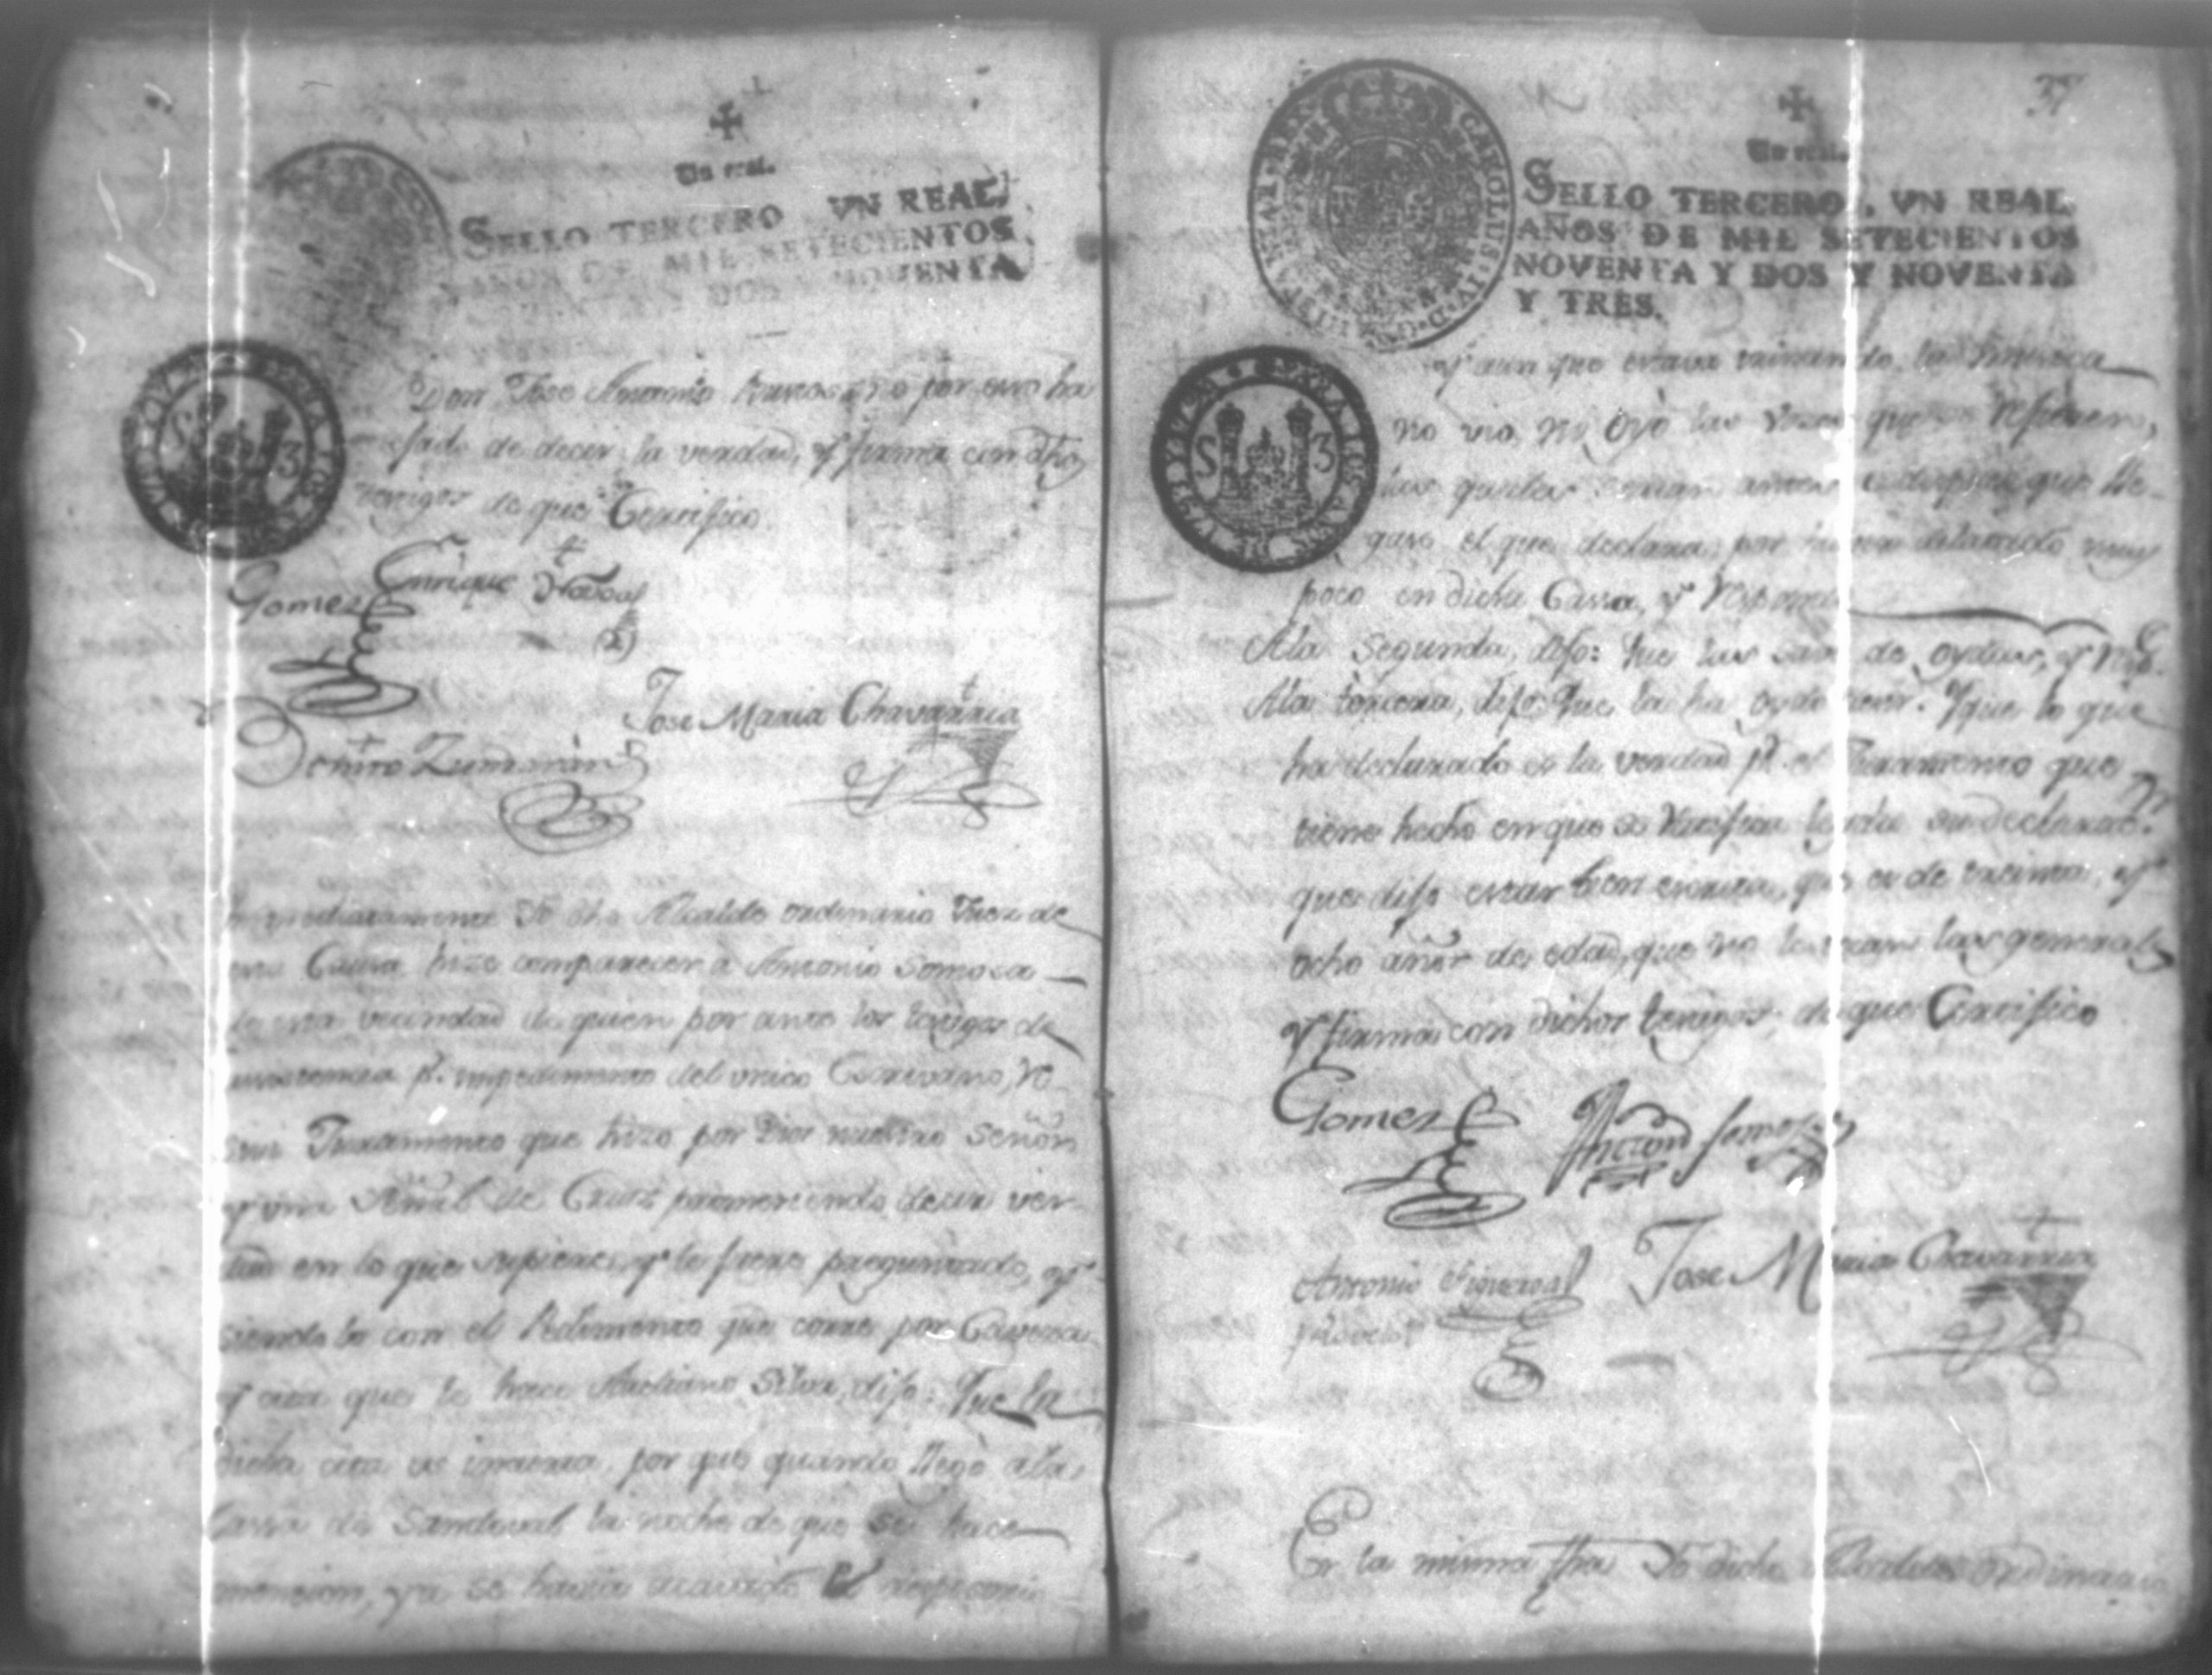 Un real.
SELLO TERCERO VN REAL,
AÑOS DE MIL SETECIENTOS
DOS Y NOVENTA
S 3
Don Jose Antonio por esso ha
de decir la verdad, y firma con dho
testigos de que Certifico.
Enrique
Gomez
Jose Maria Chavarria
Zumarán
Inmediatamente Yo dho Alcalde ordinario Juez de
esta Causa hize comparecer a Antonio Somosa
de esta vecindad de quien por ante los testigos de
asistencia pr. impedimento del unico Escrivano, re
Juramento que hizo por Dios nuestro Señor
y una Señal de Cruz prometiendo decir ver
dad en lo que supiere, y le fuere preguntado, y
siendolo con el Pedimento que corre por Caveza
y cita que le hace Silva, dijo: Que la
dicha cita es incierta, por que quando llegó ala
Cassa de Sandoval la noche de que se hace
mencion, ya se havia acavado
37
Un real.
SELLO TERCERO, VN REAL
AÑOS DE MIL SETECIENTOS
NOVENTA Y DOS Y NOVENTA
Y TRES.
CAROLUS IV D G HISPAN ET IND REX
S 3
y aun que estava
no vio, ni oyó las voces que se refieren,
que lle-
gase el que declara, por haver dilatado muy
poco en dicha Cassa, y responde
Ala Segunda, dijo: Que las save de oydas, y resp.
Ala tercera, dijo: Que la ha oydo decir. Y que lo que
ha declarado es la verdad pr. el Juramento que
tiene hecho en que se ratifica leyda su declarac.n
que dijo estar bien escrita, que es de treinta, y
ocho años de edad, que no le tocan las generales
y firma con dichos testigos, de que Certifico
Gomez
Anton Somosa
Antonio Figueroa
Jose Maria Chavarria
En la misma fha Yo dicho Alcalde ordinario